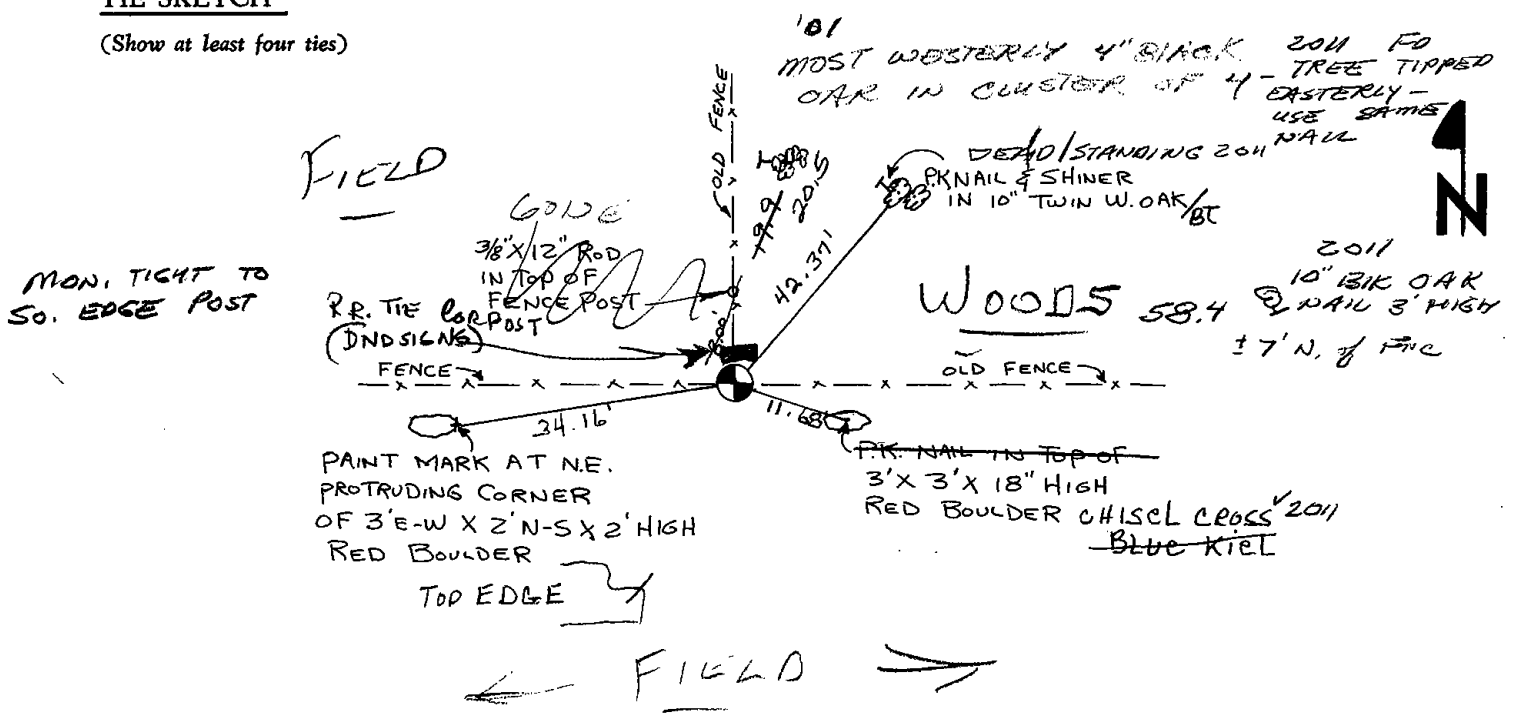 TIE SKETCH
(Show at least four ties)
'01
MOST WESTERLY 4" BLACK
OAK IN CLUSTER OF 4 -
2011 FD
TREE TIPPED
EASTERLY -
USE SAME
NAIL
OLD FENCE
FIELD
GONE
3/8" X 12" ROD
IN TOP OF
FENCE POST
19.9
20.5
DEAD/STANDING 2011
P.K NAIL & SHINER
IN 10" TWIN W. OAK/BT
N
42.37'
MON. TIGHT TO
SO. EDGE POST
R.R. TIE COR POST
(DND SIGNS)
WOODS
58.4
2011
10" BLK OAK
NAIL 3' HIGH
± 7' N. of FNC
FENCE
OLD FENCE
34.16'
11.68'
PAINT MARK AT N.E.
PROTRUDING CORNER
OF 3'E-W X 2'N-S X 2'HIGH
RED BOULDER
TOP EDGE
P.K. NAIL IN TOP OF
3' X 3' X 18" HIGH
RED BOULDER CHISEL CROSS ✓ 2011
BLUE KIEL
FIELD